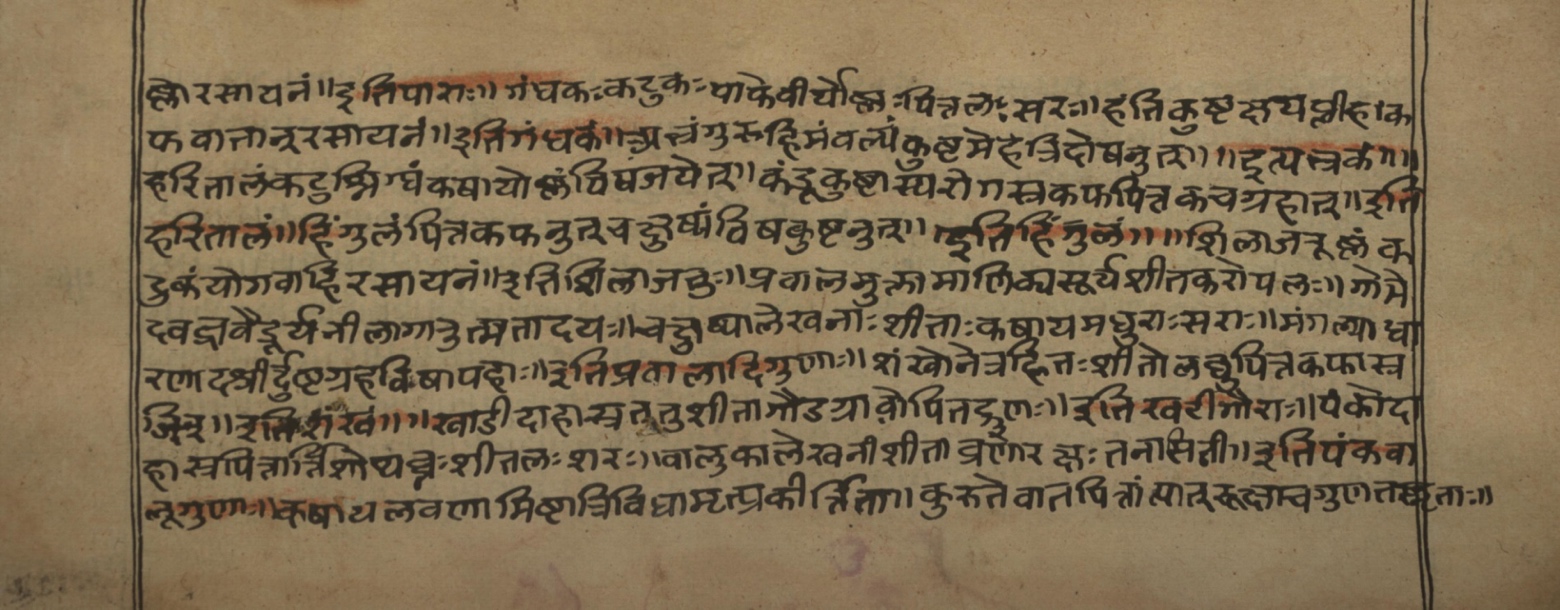 ह्मोरसायनं॥इतिपाराः॥गंधकःकटुकःपाकेवीर्योष्णःपित्तलःसरः॥हंतिकुष्टक्षयप्लीहाक
फवातान्रसायनं॥इतिगंधकं॥अभ्रंगुरुहिमंवल्यंकुष्टमेहत्रिदोषनुत्॥॥इत्यभ्रकं॥॥
हरितालंकटुस्निग्धंकषायोष्णंविषंजयेत्॥कंडूकुष्टास्यरोगास्रकफपित्तकचग्रहान्॥इति
हरितालं॥हिंगुलंपित्तकफनुत्चक्षुष्यंविषकुष्टनुत्॥॥इतिहिंगुलं॥॥शिलाजतूष्णंक
टुकंयोगवाहिरसायनं॥इतिशिलाजतुः॥प्रवालमुक्तामाणिक्यसूर्यशीतकरोपलः॥गोमे
दवज्रवैडूर्यनीलागारुत्मतादयः॥चक्षुष्यालेखनाःशीताःकषायमधुराःसराः॥मंगल्याधा
रणादश्रीर्दुष्टग्रहविषापहाः॥इतिप्रवालादिगुणाः॥शंखोनेत्रहितःशीतोलघुपित्तकफास्र
जित्॥इतिशंखं॥॥खडीदाहास्रनुतुशीतागौडग्रावोपितद्गुणः॥इतिखरीगौराः॥पंकोदा
हास्रपित्तार्त्तिशोथघ्नःशीतलःशरः॥वालुकालेखनीशीताव्रणोरक्षःतनासिती॥इतिपंकवा
लूगुणाः॥कषायलवणामिष्टात्रिविधामृत्प्रकीर्त्तिता॥कुरुतेवातपित्तां